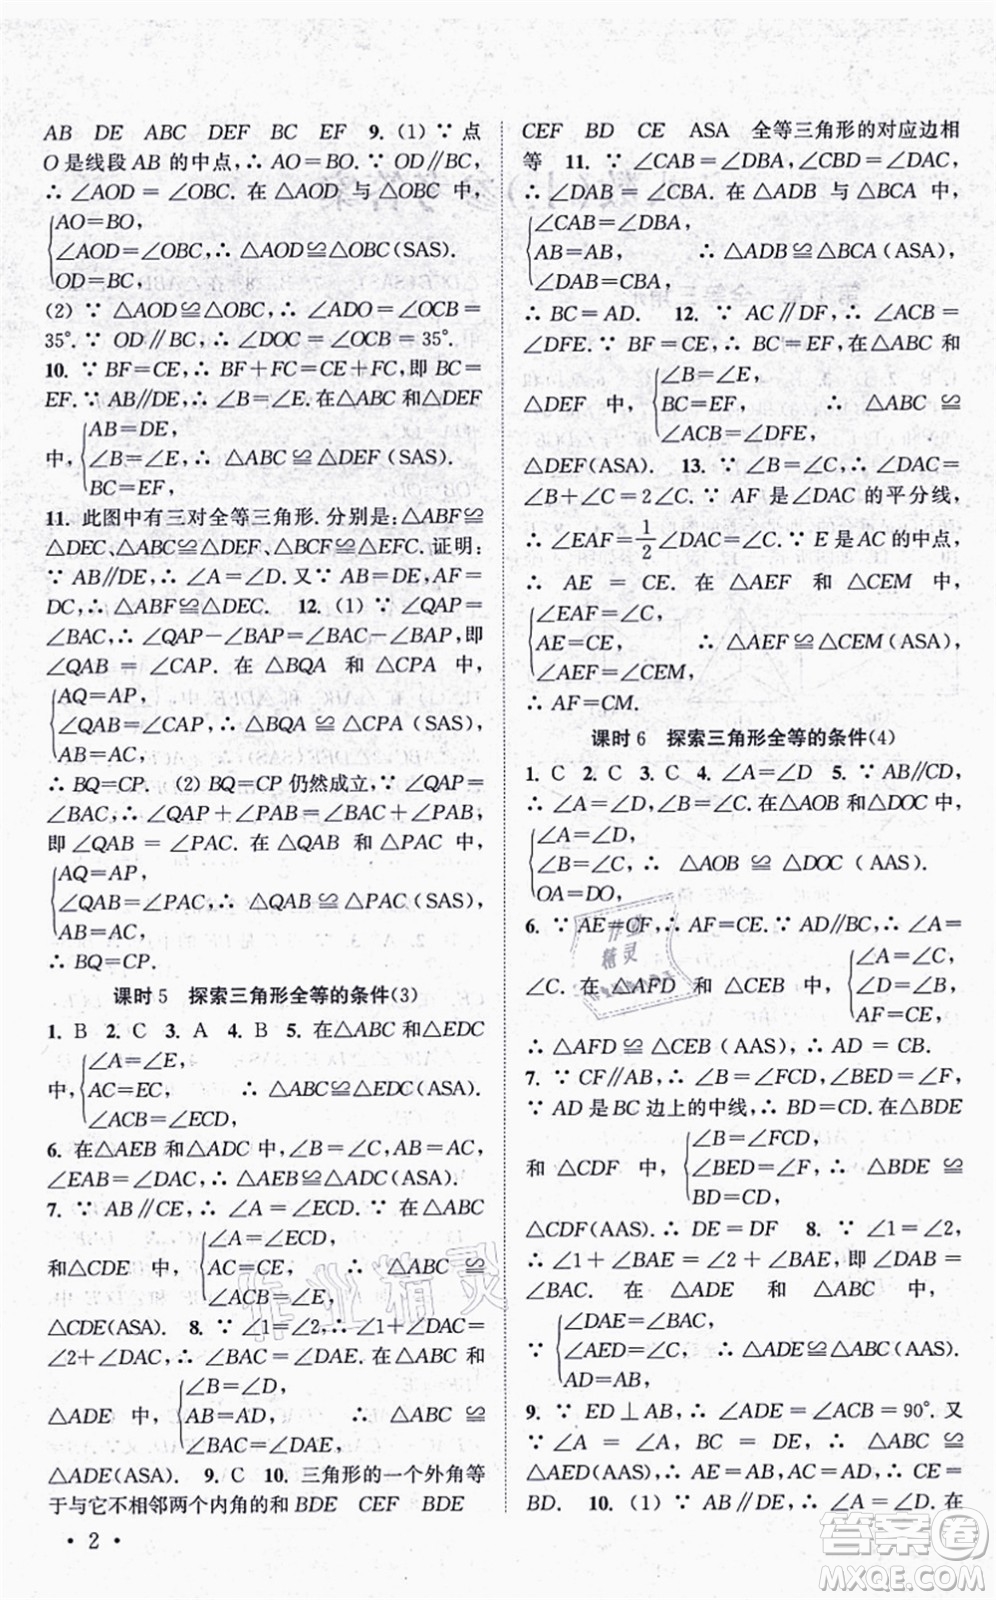 AB DE ABC DEF BC EF 9. (1) ∵ 点
O 是线段 AB 的中点,∴ AO=BO. ∵ OD∥BC,
∴ ∠AOD = ∠OBC. 在 △AOD 与 △OBC 中,
AO=BO,
∠AOD=∠OBC,∴ △AOD≌△OBC(SAS).
OD=BC,
(2) ∵ △AOD≌△OBC,∴ ∠ADO=∠OCB=
35°. ∵ OD∥BC,∴ ∠DOC=∠OCB=35°.
10. ∵ BF=CE,∴ BF+FC=CE+FC,即 BC=
EF. ∵ AB∥DE,∴ ∠B=∠E. 在△ABC 和△DEF
AB=DE,
中, ∠B=∠E, ∴ △ABC ≌ △DEF (SAS).
BC=EF,
11. 此图中有三对全等三角形. 分别是:△ABF≌
△DEC、△ABC≌△DEF、△BCF≌△EFC. 证明:
∵ AB∥DE,∴ ∠A=∠D. 又∵ AB=DE,AF=
DC,∴ △ABF≌△DEC. 12. (1) ∵ ∠QAP=
∠BAC,∴ ∠QAP-∠BAP=∠BAC-∠BAP,即
∠QAB = ∠PAC. 在 △BQA 和 △CPA 中,
AQ=AP,
∠QAB=∠CAP,∴ △BQA ≌ △CPA (SAS),
AB=AC,
∴ BQ=CP. (2) BQ=CP 仍然成立,∵ ∠QAP=
∠BAC,∴ ∠QAP+∠PAB=∠BAC+∠PAB,
即 ∠QAB = ∠PAC. 在 △QAB 和 △PAC 中,
AQ=AP,
∠QAB=∠PAC,∴ △QAB ≌ △PAC (SAS),
AB=AC,
∴ BQ=CP.
课时 5 探索三角形全等的条件(3)
1. B 2. C 3. A 4. B 5. 在△ABC 和△EDC
∠A=∠E,
中, AC=EC, ∴ △ABC≌△EDC(ASA).
∠ACB=∠ECD,
6. 在△AEB 和△ADC 中,∠B=∠C,AB=AC,
∠EAB=∠DAC,∴ △AEB≌△ADC(ASA).
7. ∵ AB∥CE,∴ ∠A = ∠ECD. ∵ 在 △ABC
∠A=∠ECD,
和△CDE 中, AC=CE, ∴ △ABC ≌
∠ACB=∠E,
△CDE(ASA). 8. ∵ ∠1=∠2,∴ ∠1+∠DAC=
∠2+∠DAC,∴ ∠BAC=∠DAE. 在△ABC 和
∠B=∠D,
△ADE 中, AB=AD, ∴ △ABC ≌
∠BAC=∠DAE,
△ADE(ASA). 9. C 10. 三角形的一个外角等
于与它不相邻两个内角的和 BDE CEF BDE
· 2 ·
CEF BD CE ASA 全等三角形的对应边相
等 11. ∵ ∠CAB=∠DBA,∠CBD=∠DAC,
∴ ∠DAB = ∠CBA. 在 △ADB 与 △BCA 中,
∠CAB=∠DBA,
AB=BA, ∴ △ADB ≌ △BCA (ASA),
∠DAB=∠CBA,
∴ BC=AD. 12. ∵ AC∥DF,∴ ∠ACB =
∠DFE. ∵ BF=CE,∴ BC=EF,在△ABC 和
∠B=∠E,
△DEF 中, BC=EF, ∴ △ABC ≌
∠ACB=∠DFE,
△DEF(ASA). 13. ∵ ∠B=∠C,∴ ∠DAC=
∠B+∠C=2∠C. ∵ AF 是∠DAC 的平分线,
∴ ∠EAF=1/2∠DAC=∠C. ∵ E 是 AC 的中点,
∴ AE = CE. 在 △AEF 和 △CEM 中,
∠EAF=∠C,
AE=CE, ∴ △AEF≌△CEM(ASA),
∠AEF=∠CEM,
∴ AF=CM.
课时 6 探索三角形全等的条件(4)
1. C 2. C 3. C 4. ∠A=∠D 5. ∵ AB∥CD,
∴ ∠A=∠D,∠B=∠C. 在△AOB 和△DOC 中,
∠A=∠D,
∠B=∠C,∴ △AOB ≌ △DOC (AAS).
OA=DO,
6. ∵ AE=CF,∴ AF=CE. ∵ AD∥BC,∴ ∠A=
∠A=∠C,
∠C. 在 △AFD 和 △CEB 中, ∠D=∠B,
AF=CE,
∴ △AFD ≌ △CEB (AAS),∴ AD = CB.
7. ∵ CF∥AB,∴ ∠B=∠FCD,∠BED=∠F,
∵ AD 是 BC 边上的中线,∴ BD=CD. 在△BDE
∠B=∠FCD,
和 △CDF 中, ∠BED=∠F, ∴ △BDE ≌
BD=CD,
△CDF(AAS). ∴ DE=DF 8. ∵ ∠1=∠2,
∴ ∠1 + ∠BAE = ∠2 + ∠BAE,∴ ∠DAE =
∠BAC. 在 △DAE 和 △BAC 中,
∠DAE=∠BAC,
∠AED=∠C, ∴ △DAE≌△BAC(AAS).
AD=AB,
9. ∵ ED⊥AB,∴ ∠ADE=∠ACB=90°. 又
∵ ∠A = ∠A, BC = DE, ∴ △ABC ≌
△AED(AAS). ∴ AE=AB,AC=AD,∴ CE=
BD. 10. (1) ∵ AB∥DE,∴ ∠A=∠D. 在
作业精灵
作业精灵
答案卷
MXQE.COM